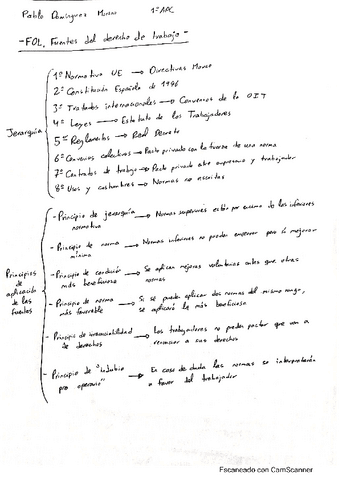 Pablo Domínguez Moreno 1º APC
- FOL. Fuentes del derecho de trabajo -
Jerarquía
1º Normativa UE → Directivas Marco
2º Constitución Española de 1996
3º Tratados internacionales → Convenios de la OIT
4º Leyes → Estatuto de los Trabajadores
5º Reglamentos → Real Decreto
6º Convenios colectivos → Pacto privado con la fuerza de una norma
7º Contratos de trabajo → Pacto privado entre empresario y trabajador
8º Usos y costumbres → Normas no escritas
Principios de aplicación de las fuentes
- Principio de jerarquía normativa → Normas superiores están por encima de las inferiores
- Principio de norma mínima → Normas inferiores no pueden empeorar pero sí mejorar
- Principio de condición más beneficiosa → Se aplican mejoras voluntarias antes que otras normas
- Principio de norma más favorable → Si se pueden aplicar dos normas del mismo rango, se aplicará la más beneficiosa
- Principio de irrenunciabilidad de derechos → Los trabajadores no pueden pactar que van a renunciar a sus derechos
- Principio de "Indubio pro operario" → En caso de duda las normas se interpretarán a favor del trabajador
Escaneado con CamScanner